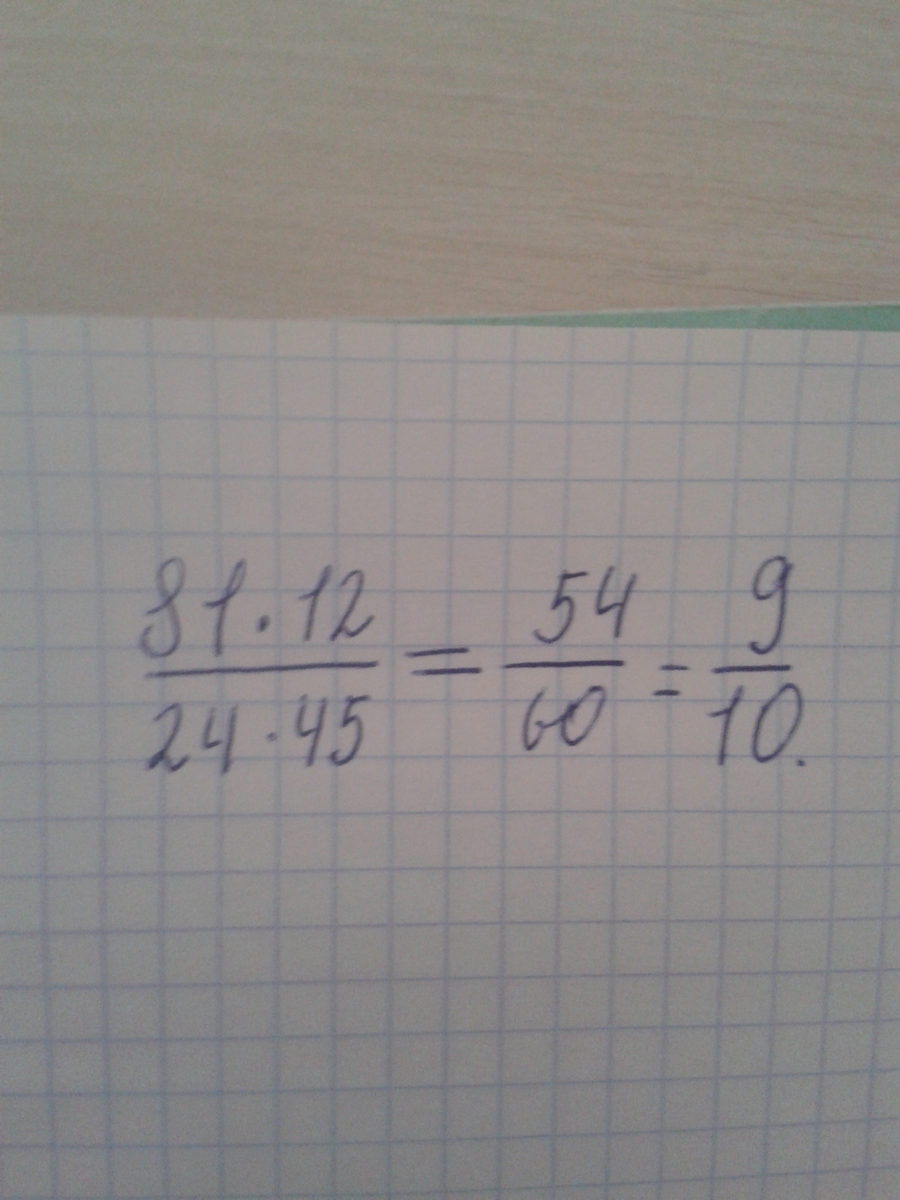 81·12/24·45 = 54/60 = 9/10.